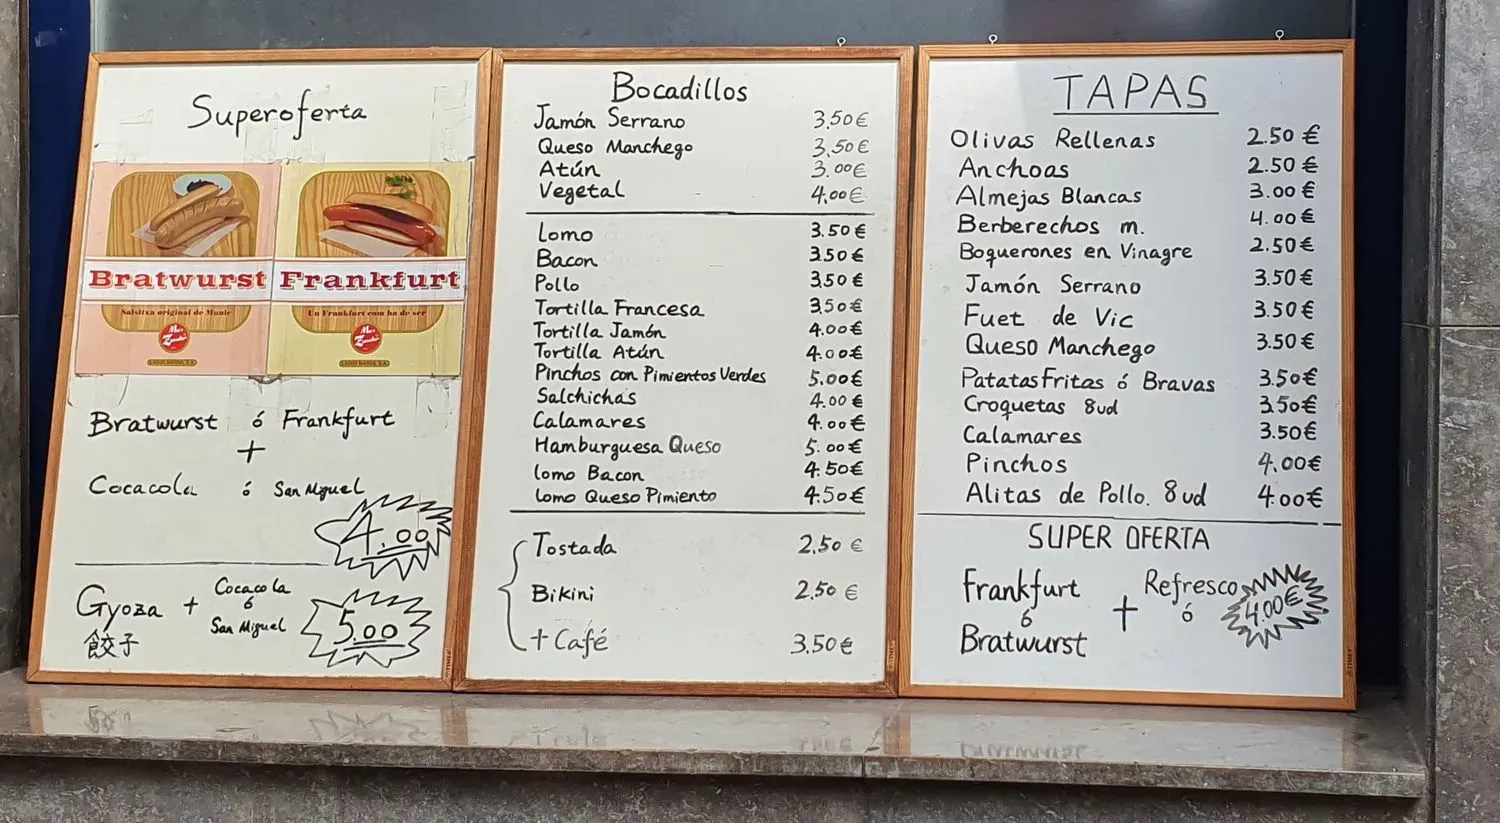 Superoferta
Bratwurst Frankfurt
Salsitxa original de Munic
Un Frankfurt com ha de ser
Bratwurst ó Frankfurt
+
Cocacola ó San Miguel
4.00
Gyoza + Cocacola ó San Miguel 5.00
餃子
Bocadillos
Jamón Serrano 3.50€
Queso Manchego 3.50€
Atún 3.00€
Vegetal 4,00€
Lomo 3.50€
Bacon 3.50€
Pollo 3.50€
Tortilla Francesa 3.50€
Tortilla Jamón 4.00€
Tortilla Atún 4.00€
Pinchos con Pimientos Verdes 5.00€
Salchichas 4.00€
Calamares 4.00€
Hamburguesa Queso 5.00€
lomo Bacon 4.50€
lomo Queso Pimiento 4.50€
Tostada 2.50€
Bikini 2.50€
+ Café 3.50€
TAPAS
Olivas Rellenas 2.50€
Anchoas 2.50€
Almejas Blancas 3.00€
Berberechos m. 4.00€
Boquerones en Vinagre 2.50€
Jamón Serrano 3.50€
Fuet de Vic 3.50€
Queso Manchego 3.50€
Patatas Fritas ó Bravas 3.50€
Croquetas 8ud 3.50€
Calamares 3.50€
Pinchos 4.00€
Alitas de Pollo. 8ud 4.00€
SUPER OFERTA
Frankfurt ó Bratwurst + Refresco ó 4.00€